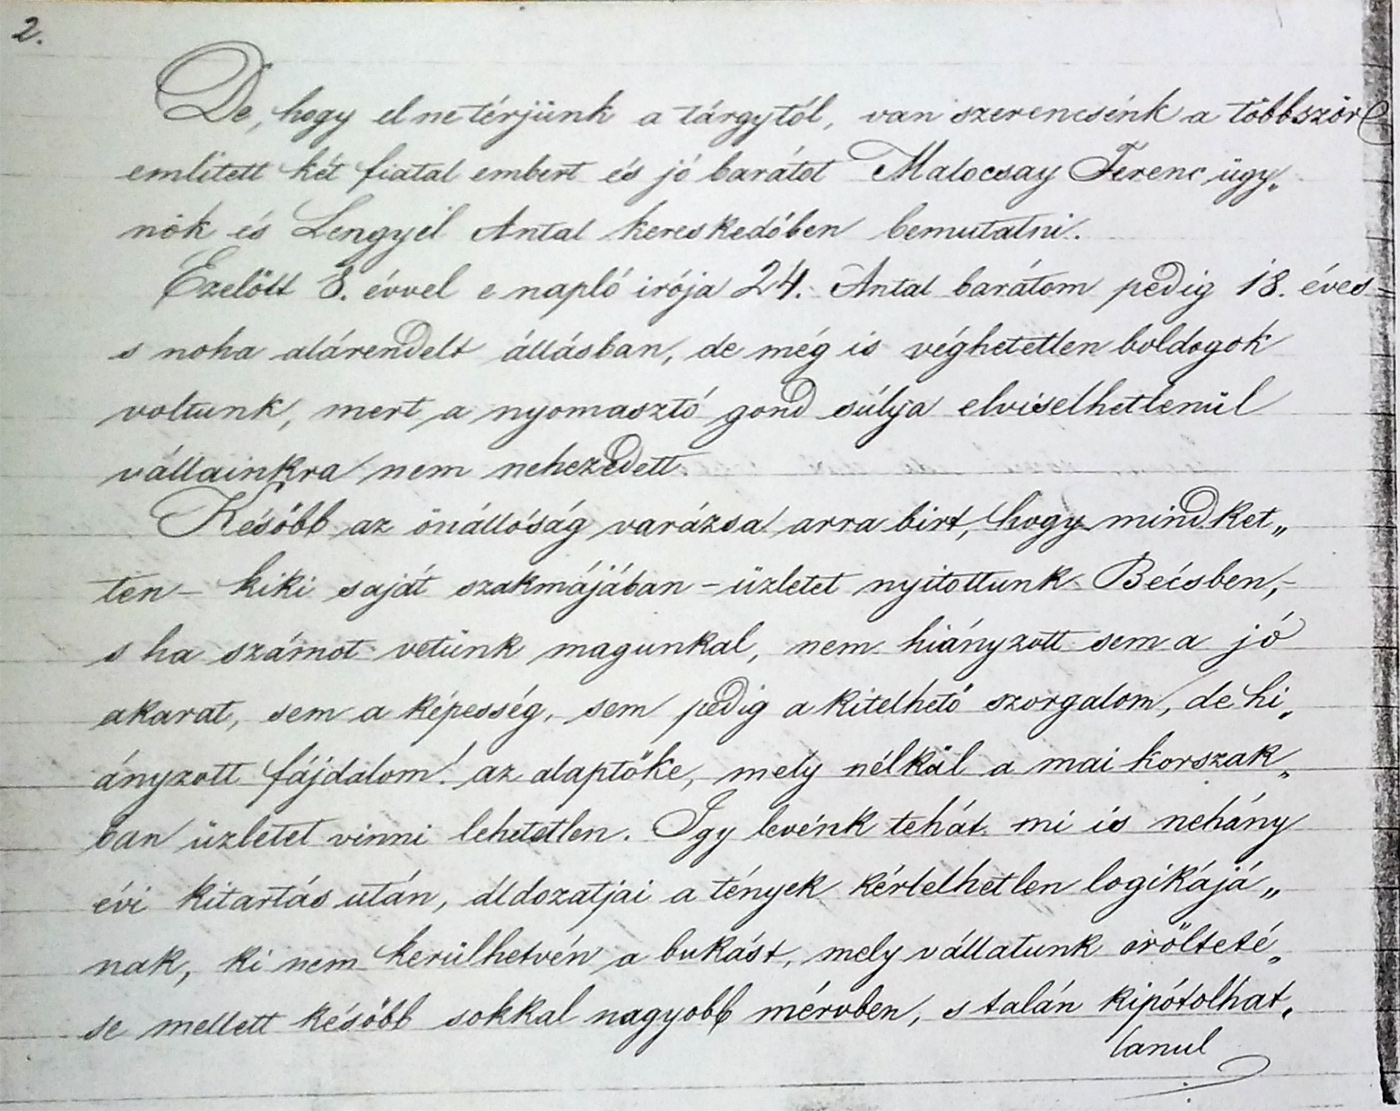 2.
De, hogy el ne térjünk a tárgytól, van szerencsénk a többször
emlitett két fiatal embert és jó barátot Malocsay Ferenc ügy„
nök és Lengyel Antal kereskedőben bemutatni.
Ezelőtt 8. évvel e napló irója 24. Antal barátom pedig 18. éves
s noha alárendelt állásban, de még is véghetetlen boldogok
voltunk, mert a nyomasztó gond súlya elviselhetlenül
vállainkra nem nehezedett.
Később az önállóság varázsa arra birt, hogy mindket„
ten – kiki saját szakmájában – üzletet nyitottunk Bécsben, –
s ha számot vetünk magunkal, nem hiányzott sem a jó
akarat, sem a képesség, sem pedig a kitelhető szorgalom, de hi„
ányzott fájdalom! az alaptőke, mely nélkül a mai korszak„
ban üzletet vinni lehetetlen. Igy levénk tehát mi is nehány
évi kitartás után, áldozatjai a tények kérlelhetlen logikájá„
nak, ki nem kerülhetvén a bukást, mely vállatunk erőlteté„
se mellett később sokkal nagyobb mérvben, s talán kipótolhat„
lanul